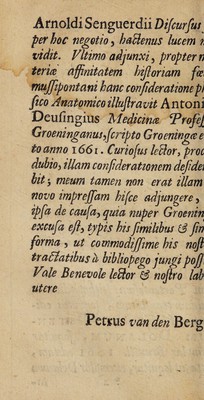 Arnoldi Senguerdii Diſcurſus
per hoc negotio, hactenus lucem n
vidit. Vltimo adjunxi, propter n
teriæ affinitatem hiſtoriam fœ
muſſipontani hanc conſideratione ph
ſico Anatomico illuſtravit Antoni
Deuſingius Medicinæ Profeſ
Groeninganus, ſcripto Groeningæ e
to anno 1661. Curioſus lector, proc
dubio, illam conſiderationem deſider
bit; meum tamen non erat illam
novo impreſſam hiſce adjungere,
ipſa de cauſa, quia nuper Groenin
excuſa eſt, typis his ſimilibus & ſim
forma, ut commodiſſime his noſt
tractatibus à bibliopego jungi poſſ
Vale Benevole lector & noſtro lab
utere
Petrus van den Berg